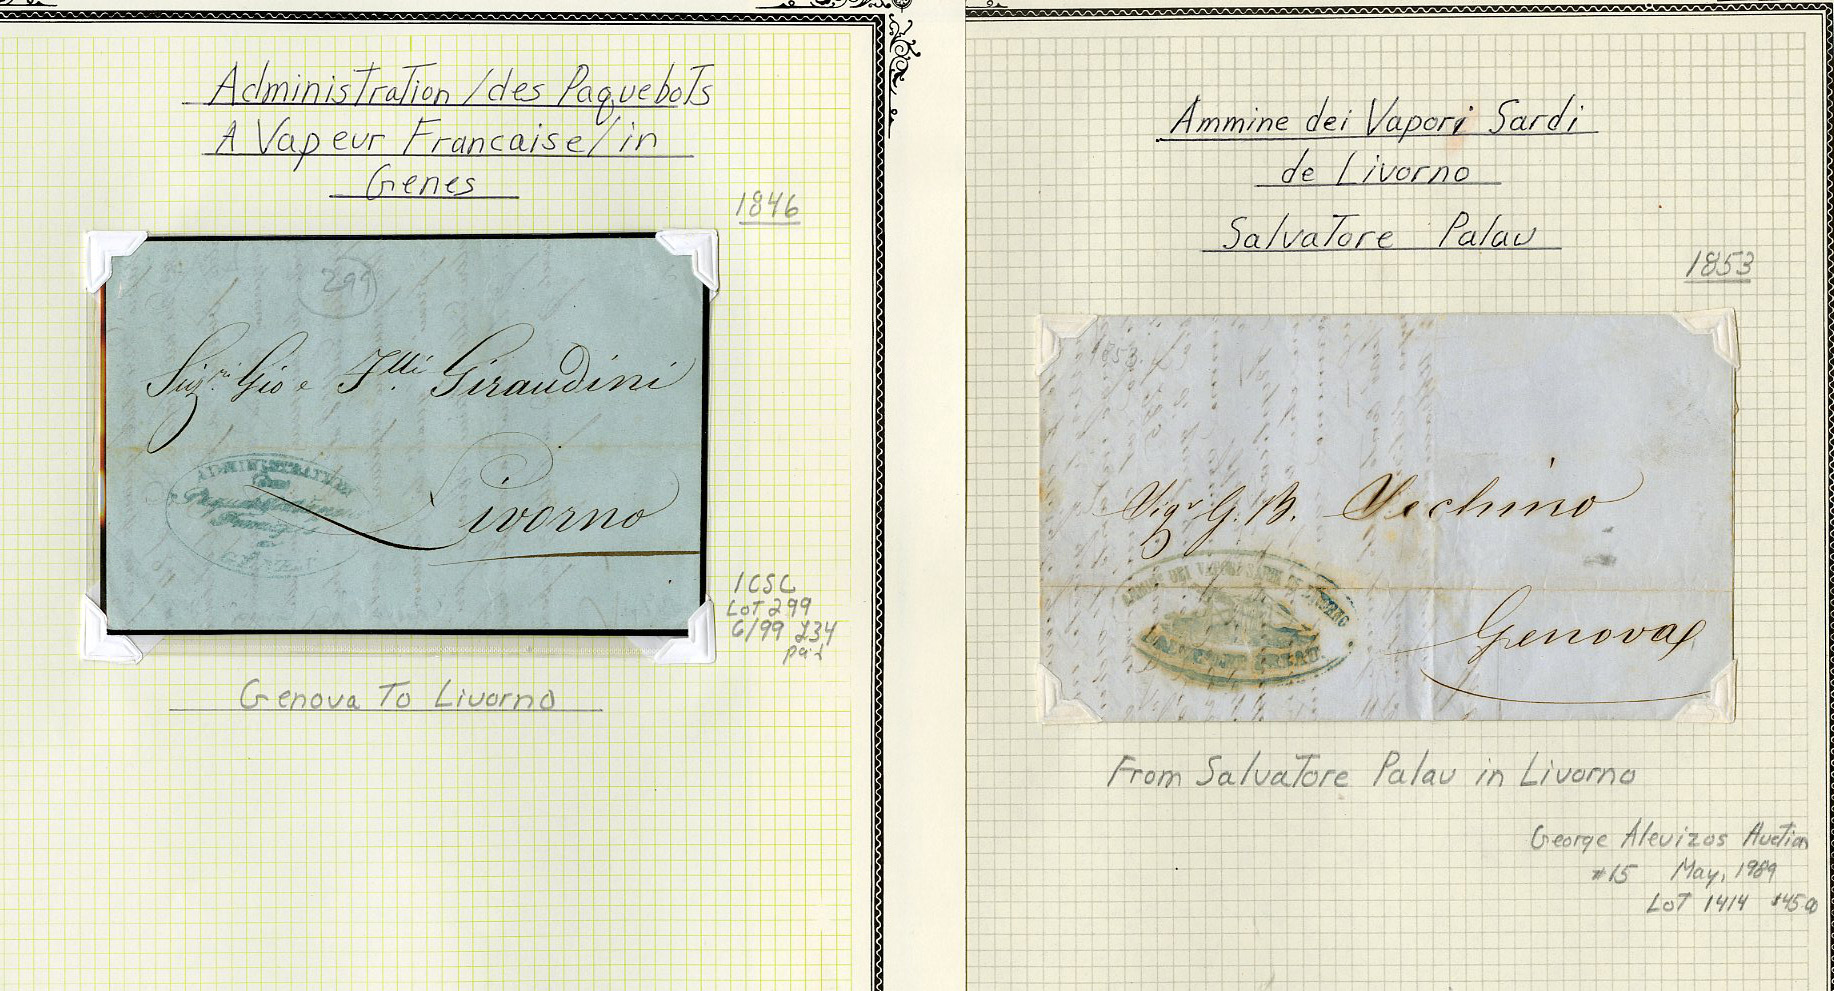 Administration/des Paquebots
A Vapeur Francaise/in
Genes
1846
299
Sigri Gio e Flli Giraudini
Livorno
ADMINISTRATION
GENES
ICSC
LOT 299
6/99 £34
paid
Genova To Livorno
Ammine dei Vapori Sardi
de Livorno
Salvatore Palau
1853
1853.
Sigr G. B. Sechino
Genova
DEI VAPORI SARDI DE LIVORNO
SALVATORE PALAU.
From Salvatore Palau in Livorno
George Alevizos Auction
#15 May, 1989
LOT 1414 $45.00